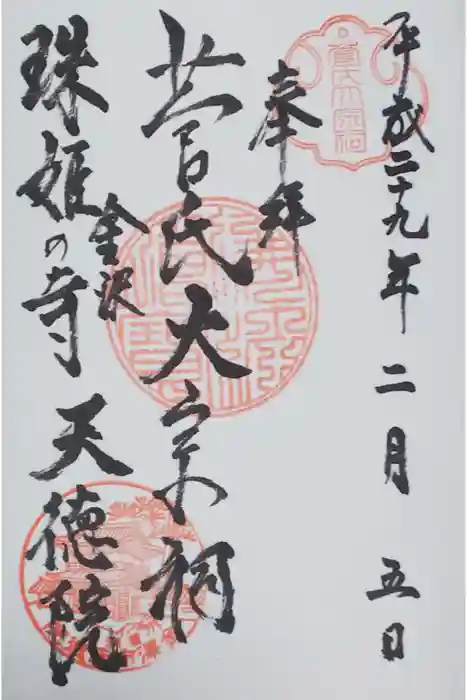 平成二十九年 二月 五日
奉拝
菅氏大宗祠
金沢
珠姫の寺 天徳院
菅氏大宗祠